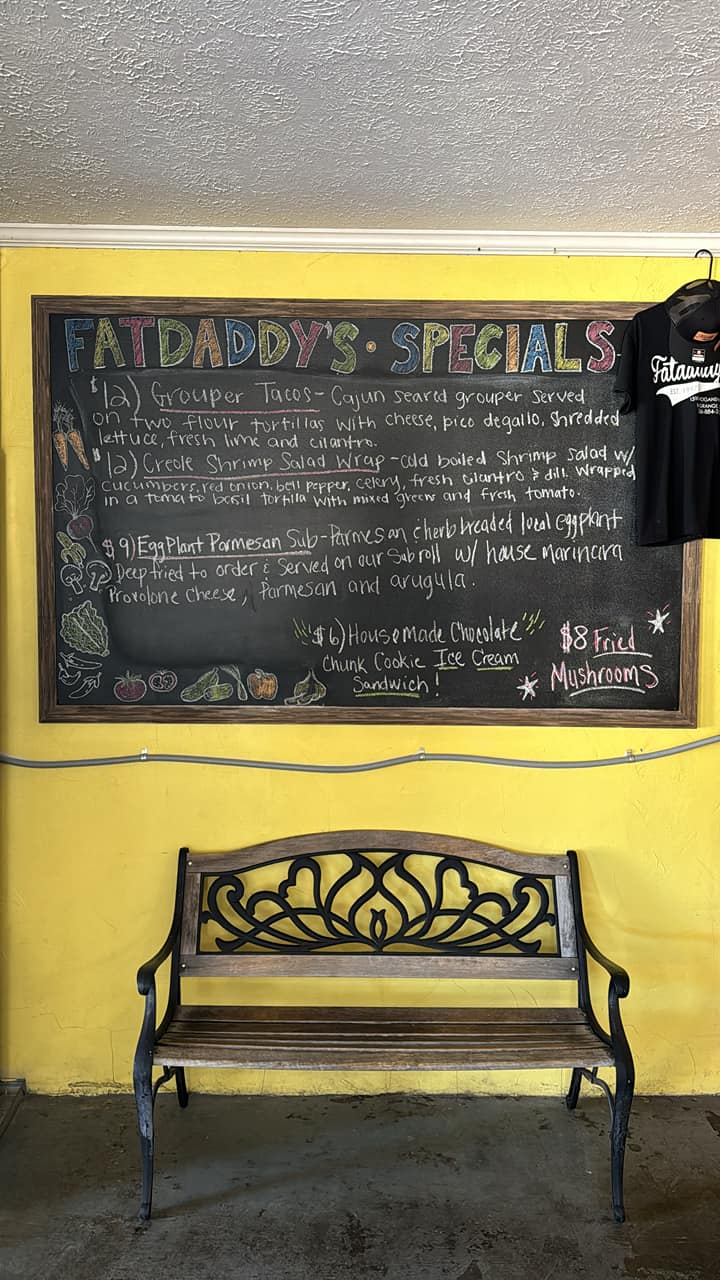 FATDADDY'S • SPECIALS
$12) Grouper Tacos - Cajun seared grouper served
on two flour tortillas with cheese, pico degallo, shredded
lettuce, fresh lime and cilantro.
$12) Creole Shrimp Salad Wrap - cold boiled shrimp salad w/
cucumbers, red onion, bell pepper, celery, fresh cilantro & dill. Wrapped
in a tomato basil tortilla with mixed greens and fresh tomato.
$9) EggPlant Parmesan Sub - Parmesan & herb breaded local eggplant
Deep fried to order & Served on our Sub roll w/ house marincira
Provolone cheese, Parmesan and arugula.
$6) Housemade Chocolate
Chunk Cookie Ice Cream
Sandwich!
$8 Fried
Mushrooms
Fatdaddy's